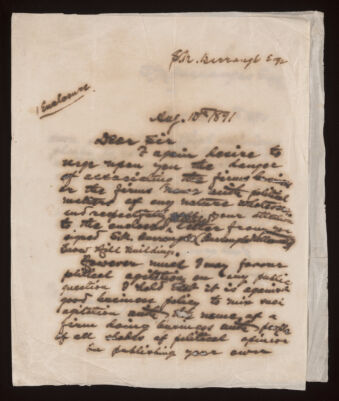 S. R. Burrough Esq
1 Enclosure.
Aug. 10th 1891
Dear Sir
I again desire to
urge upon you the danger
of associating the firms
or the firms name with political
matters of any nature whatsoever
and respectfully your attention
to the enclosed letter from
signed
Building.
However much I may favor
political agitation on any public
question I hold that it is against
good business policy to mix such
agitation with the name of a
firm doing business with people
of all shades of political opinion
In publishing your own